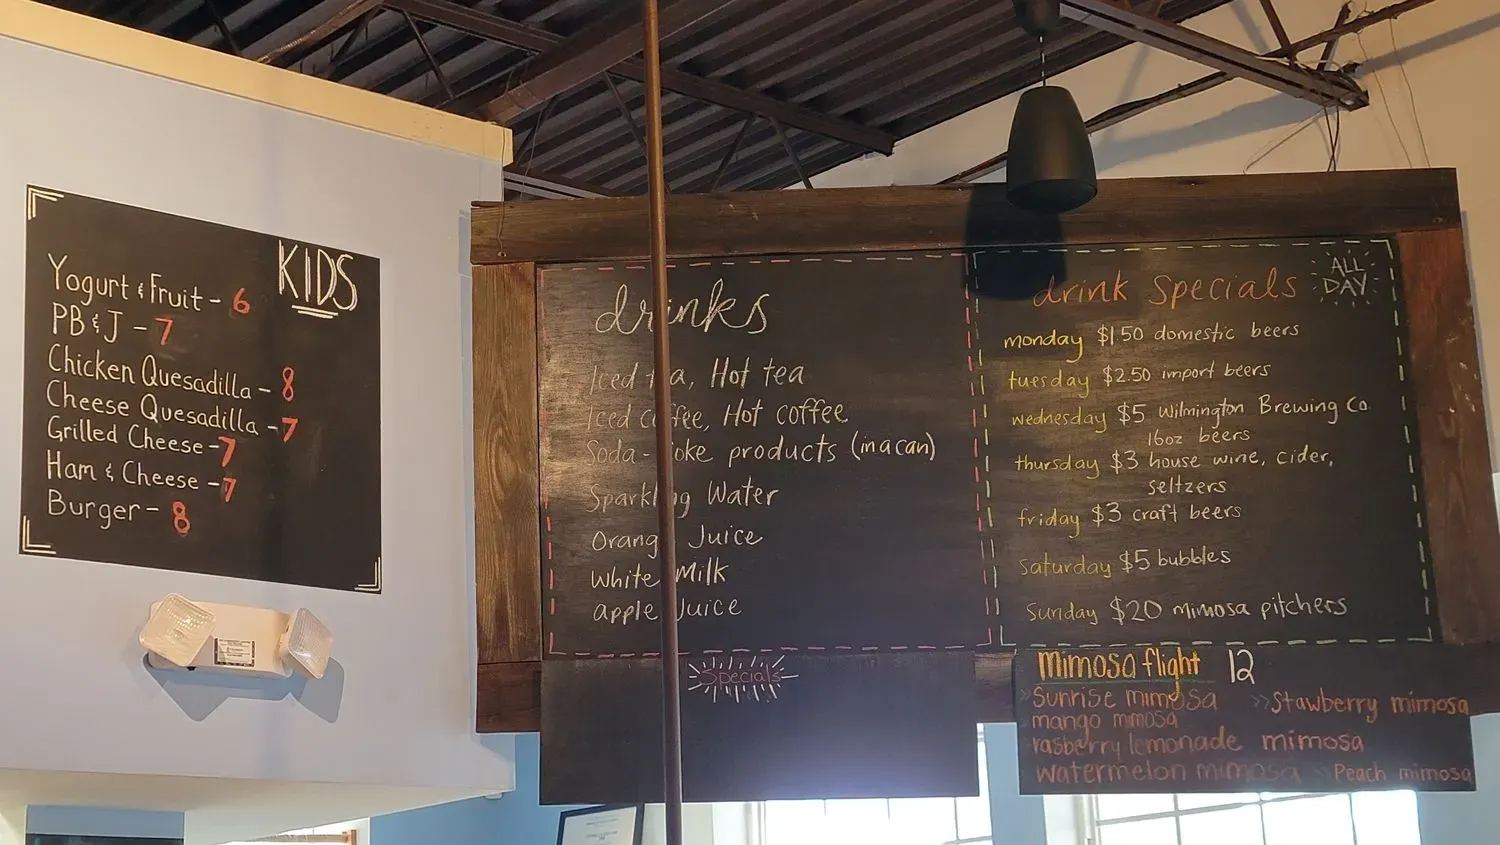 KIDS
Yogurt & Fruit - 6
PB & J - 7
Chicken Quesadilla - 8
Cheese Quesadilla - 7
Grilled Cheese - 7
Ham & Cheese - 7
Burger - 8
drinks
Iced tea, Hot tea
Iced coffee, Hot coffee
Soda - Coke products (in a can)
Sparkling Water
Orange Juice
White Milk
apple Juice
Specials
drink Specials
ALL
DAY
monday $1.50 domestic beers
tuesday $2.50 import beers
wednesday $5 Wilmington Brewing Co
16oz beers
thursday $3 house wine, cider,
seltzers
friday $3 craft beers
saturday $5 bubbles
Sunday $20 mimosa pitchers
mimosa flight 12
>> Sunrise mimosa >> Stawberry mimosa
mango mimosa
rasberry lemonade mimosa
watermelon mimosa >> Peach mimosa